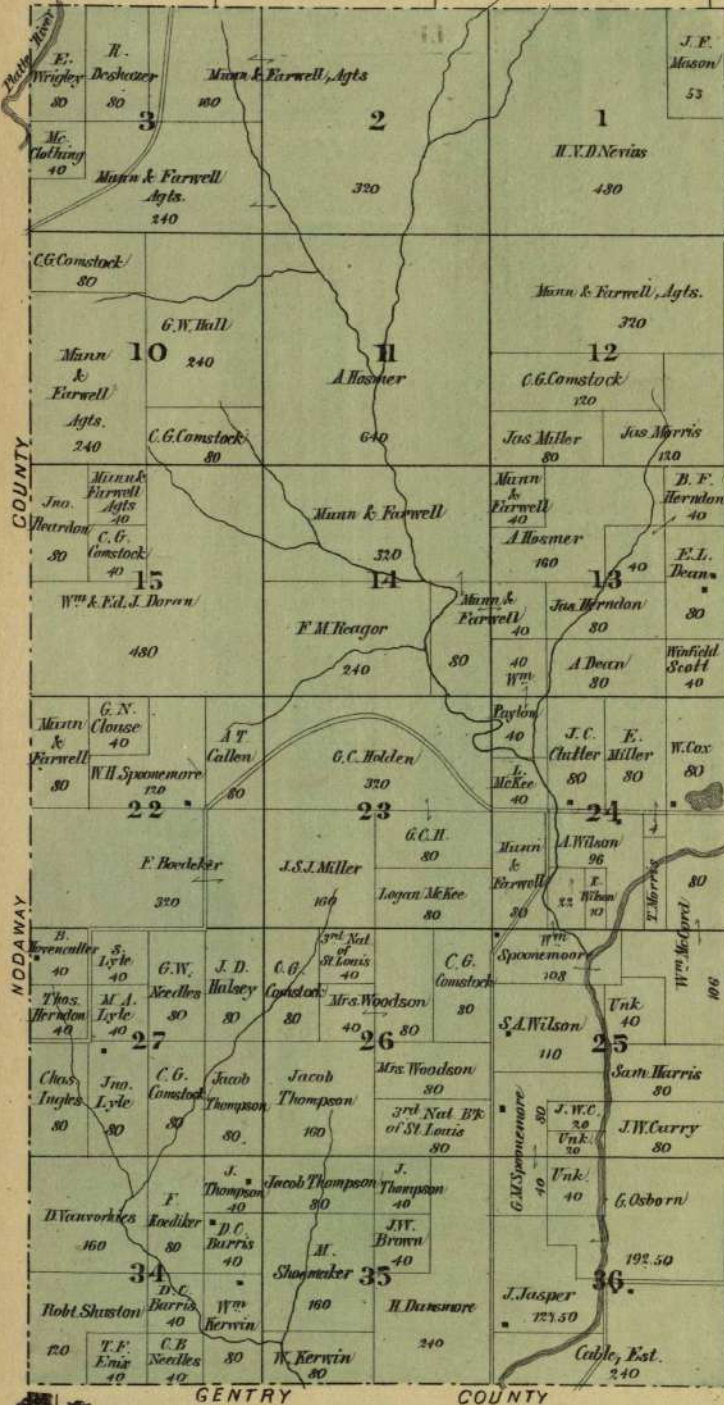 Platte River
E. Wrigley
80
R. Deshazer
80
Mann & Farwell, Agts
160
3
Mc. Clothing
40
Mann & Farwell
Agts.
240
2
320
J. F. Mason
53
1
H.V.D. Nevius
480
C.G. Comstock
80
G.W. Hall
240
10
Mann
&
Farwell
Agts.
240
C.G. Comstock
80
11
A Hosmer
640
Mann & Farwell, Agts.
320
12
C.G. Comstock
120
Jas Miller
80
Jas Morris
120
COUNTY
Jno. Reardon
80
Mann &
Farwell
Agts
40
C.G.
Comstock
40
15
Wm & Ed. J. Doran
480
Mann & Farwell
320
14
F M Reagor
240
80
Mann &
Farwell
40
Mann
&
Farwell
40
A Hosmer
160
13
40
B. F.
Herndon
40
E.L.
Dean
80
Jas Herndon
80
40
Wm
A Dean
80
Winfield
Scott
40
Mann
&
Farwell
80
G. N.
Clouse
40
W.H. Spoonemore
120
A T
Callen
80
22
F. Boedeker
320
G.C. Holden
320
23
J.S.J. Miller
160
G.C.H.
80
Logan McKee
80
Paylon
40
L.
McKee
40
J. C.
Clutter
80
E.
Miller
80
W. Cox
80
24
Mann
&
Farwell
80
A. Wilson
96
22
Wilson
10
T. Morris
4
80
Wm McCord
106
NODAWAY
B.
40
S.
Lyle
40
G.W.
Needles
80
J. D.
Halsey
80
Thos.
Herndon
40
M. A.
Lyle
40
27
Chas
Ingles
80
Jno.
Lyle
80
C. G.
Comstock
80
Jacob
Thompson
80
C. G.
Comstock
80
3rd Nat
of
St Louis
40
Mrs. Woodson
40
80
C. G.
Comstock
80
26
Jacob
Thompson
160
Mrs. Woodson
80
3rd Nat B'k
of St. Louis
80
Wm
Spoonemoor
108
S.A. Wilson
110
Unk
40
25
Sam Harris
80
G.M. Spoonemore
80
40
J. W. C.
20
Unk
20
J.W. Curry
80
Unk.
40
D. Vanvorhies
160
F
Roediker
80
J.
Thompson
40
D.C.
Barris
40
34
Robt Shuston
120
D.C.
Barris
40
Wm
Kerwin
80
T. F.
Enix
40
C.B
Needles
40
Jacob Thompson
80
J.
Thompson
40
J.W.
Brown
40
M.
Shoemaker
160
35
H. Dansmore
240
W. Kerwin
80
G. Osborn
192.50
36
J. Jasper
127.50
Cable, Est.
240
GENTRY COUNTY